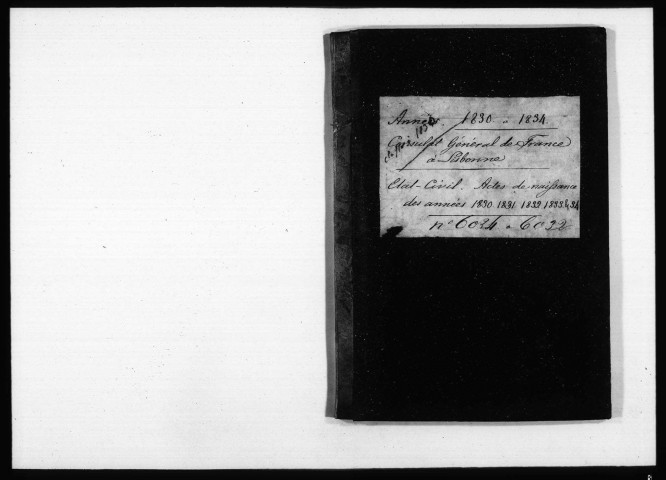 Années 1830 à 1834
Consulat Général de France
à Lisbonne
Etat-Civil. Actes de naissance
des années 1830 1831 1832 1833 & 34
n° 6024 à 6032